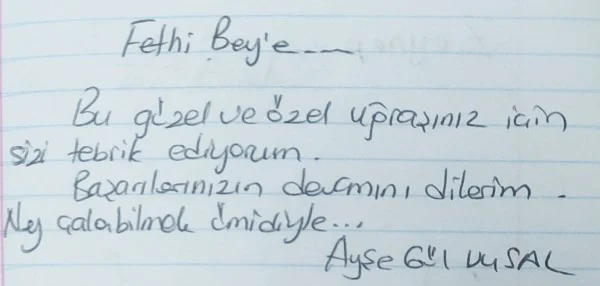 Fethi Bey'e ----
Bu güzel ve özel uğraşınız için
sizi tebrik ediyorum.
Başarılarınızın devamını dilerim.
Ney çalabilmek ümidiyle...
Ayşe GÜL UYSAL